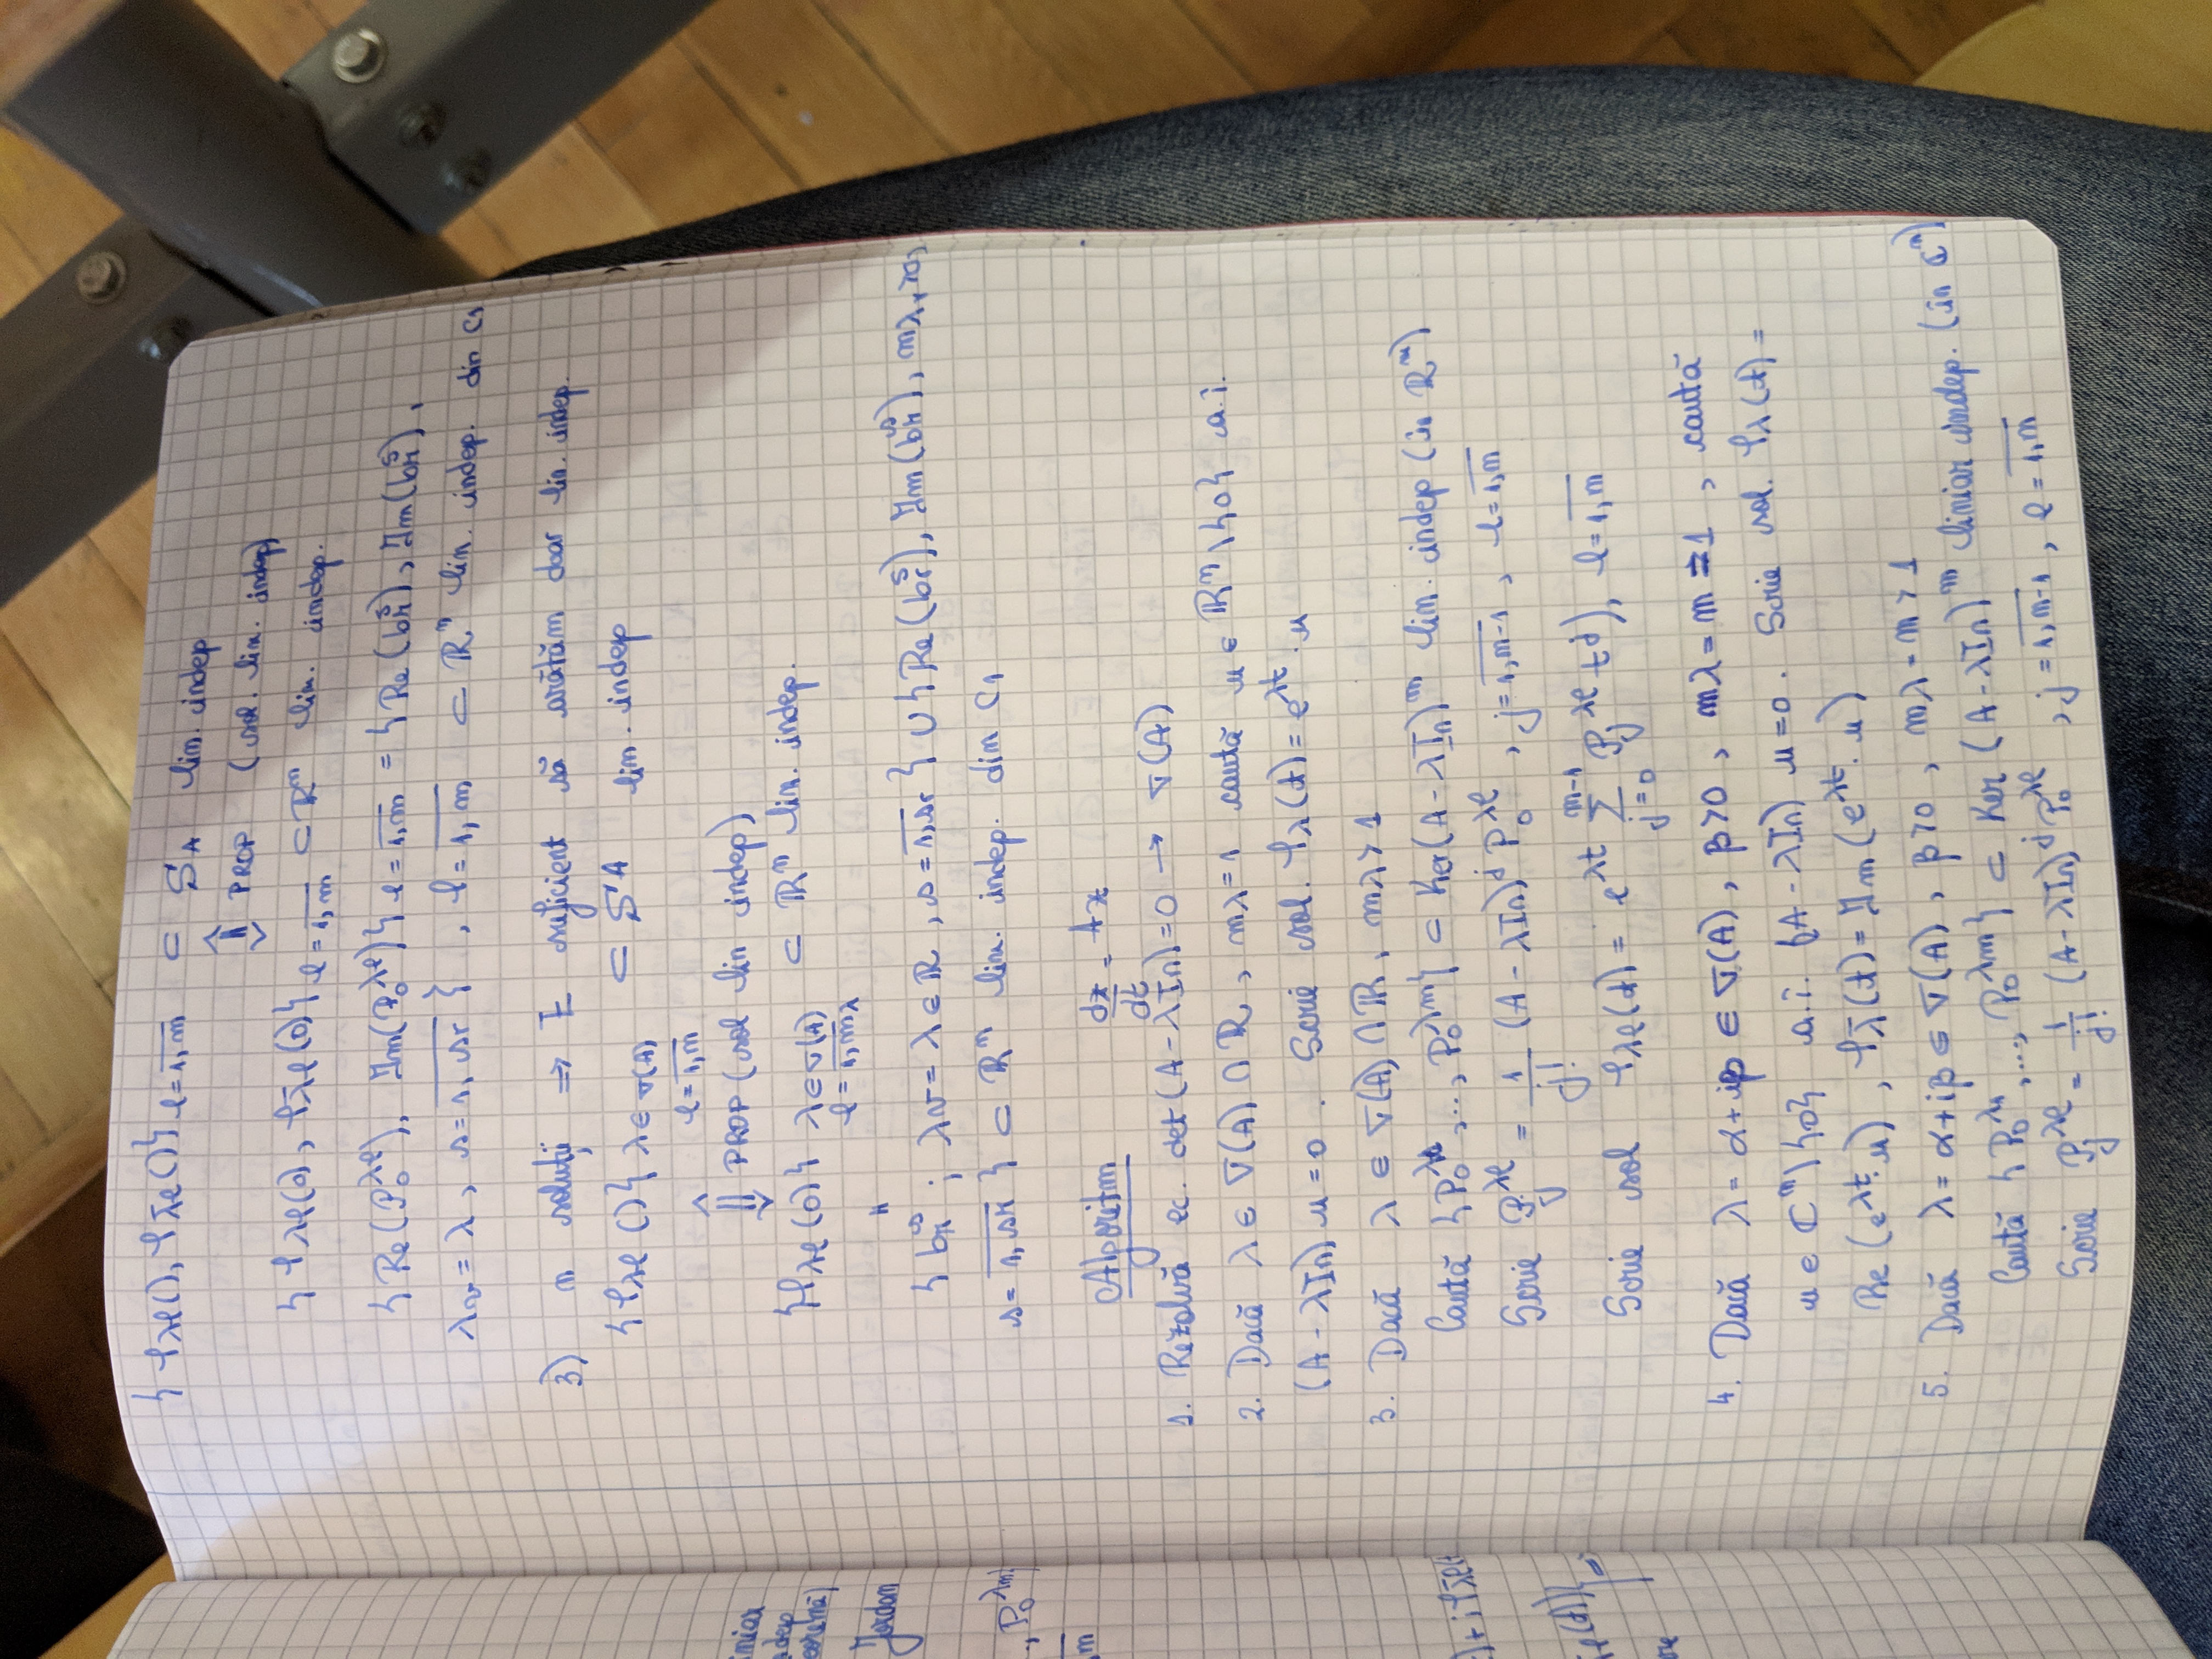 {φλℓ(), φλ̄ℓ()} ℓ=1,m ⊂ S_A lin. indep
⇕ PROP (sol. lin. indep)
{φλℓ(0), φλ̄ℓ(0)} ℓ=1,m ⊂ ℝⁿ lin. indep.
{Re(P₀^λℓ), Im(P₀^λℓ)} ℓ=1,m = {Re(b_r^s), Im(b_r^s),
λr = λ, s=1,sr}, ℓ=1,m ⊂ ℝⁿ lin. indep. din C1
3) n soluții ⇒ E suficient să arătăm doar lin. indep.
{φλℓ()} λ∈σ(A) ⊂ S_A lin. indep
ℓ=1,m
⇕ PROP (sol lin indep)
{φλℓ(0)} λ∈σ(A) ⊂ ℝⁿ lin. indep.
ℓ=1,mλ
"
{b_r^s ; λr = λ ∈ ℝ, s=1,sr} ∪ {Re(b_r^s), Im(b_r^s),
s=1,sr} ⊂ ℝⁿ lin. indep. din C1
Algoritm dx/dt = Ax
1. Rezolvă ec. det(A-λIn)=0 → σ(A)
2. Dacă λ ∈ σ(A) ∩ ℝ, mλ=1 caută u ∈ ℝⁿ\{0} a.î.
(A-λIn) u = 0. Scrie sol. φλ(t) = e^λt · u
3. Dacă λ ∈ σ(A) ∩ ℝ, mλ>1
Caută {P₀^λ1, ..., P₀^λm} ⊂ Ker(A-λIn)^m lin. indep (în ℝⁿ)
Scrie Pj^λℓ = 1/j! (A-λIn)^j P₀^λℓ, j=1,m-1, ℓ=1,m
Scrie sol φλℓ(t) = e^λt Σ_{j=0}^{m-1} Pj^λℓ t^j), ℓ=1,m
4. Dacă λ = α+iβ ∈ σ(A), β>0, mλ = m = 1, caută
u ∈ ℂⁿ\{0} a.î. (A-λIn) u=0. Scrie sol. φλ(t) =
Re(e^λt · u), φλ̄(t) = Im(e^λt · u)
5. Dacă λ = α+iβ ∈ σ(A), β>0, mλ = m > 1
Caută {P₀^λ1, ..., P₀^λm} ⊂ Ker (A-λIn)^m liniar indep. (în ℂⁿ)
Scrie Pj^λℓ = 1/j! (A-λIn)^j P₀^λℓ, j=1,m-1, ℓ=1,m
Jordan